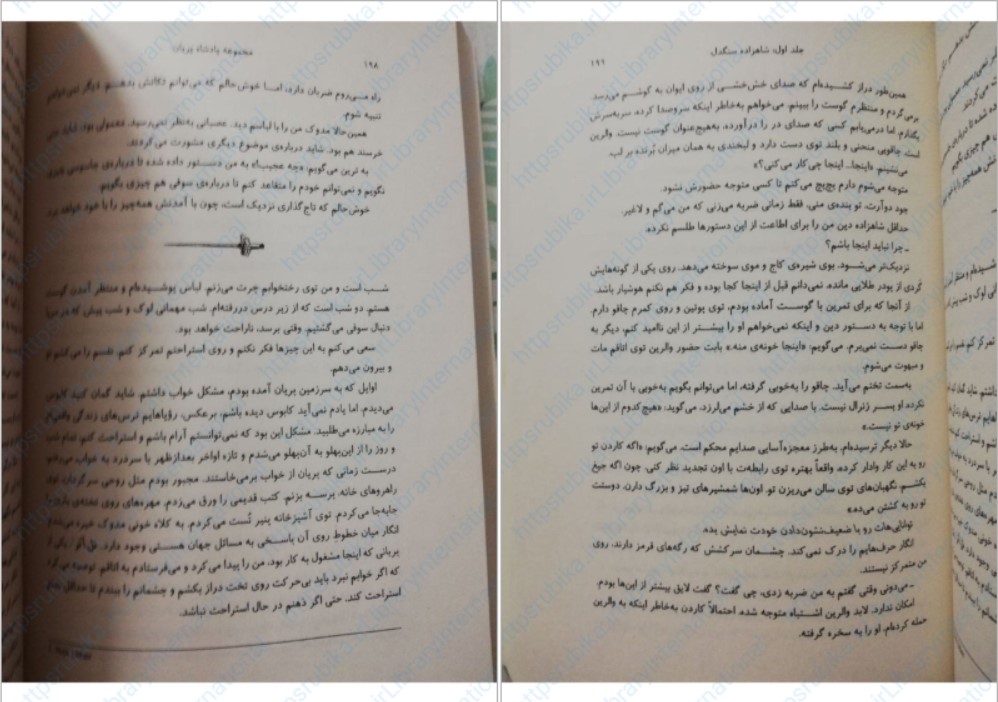 مجموعه پادشاه پریان
۱۹۸
راه می‌روم ضربان دارد، اما خوش‌حالم که می‌توانم تکانش بدهم. دیگر نمی‌خواهم
تنبیه شوم.
همین‌حالا مدوک من را با لباسم دید. عصبانی به‌نظر نمی‌رسید. معمولی بود. شاید حتی
خرسند هم بود. شاید درباره‌ی موضوع دیگری مشورت می‌کردند.
به ترین می‌گویم: «چه عجیب!» به من دستور داده شده تا درباره‌ی جاسوسی چیزی
نگویم و نمی‌توانم خودم را متقاعد کنم تا درباره‌ی سوفی هم چیزی بگویم.
خوش‌حالم که تاج‌گذاری نزدیک است، چون با آمدنش همه‌چیز را با خود خواهد برد.
شب است و من توی رختخوابم چرت می‌زنم. لباس پوشیده‌ام و منتظر آمدن گوست
هستم. دو شب است که از زیر درس دررفته‌ام. شب مهمانی لوک و شب پیش که در دریا
دنبال سوفی می‌گشتیم. وقتی برسد، ناراحت خواهد بود.
سعی می‌کنم به این چیزها فکر نکنم و روی استراحتم تمرکز کنم. نفسم را می‌کشم تو
و بیرون می‌دهم.
اوایل که به سرزمین پریان آمده بودم، مشکل خواب داشتم. شاید گمان کنید کابوس
می‌دیدم. اما یادم نمی‌آید کابوس دیده باشم، برعکس، رؤیاهایم ترس‌های زندگی واقعی‌ام
را به مبارزه می‌طلبید. مشکل این بود که نمی‌توانستم آرام باشم و استراحت کنم. تمام شب
و روز را از این‌پهلو به آن‌پهلو می‌شدم و تازه اواخر بعدازظهر با سردرد به خواب می‌رفتم،
درست زمانی که پریان از خواب برمی‌خاستند. مجبور بودم مثل روحی سرگردان توی
راهروهای خانه، پرسه بزنم. کتب قدیمی را ورق می‌زدم. مهره‌های روی تخته‌ی بازی را
جابه‌جا می‌کردم. توی آشپزخانه پنیر تُست می‌کردم. به کلاه خونی مدوک خیره می‌شدم
انگار میان خطوط روی آن پاسخی به مسائل جهان هستی وجود دارد. یکی از
پریانی که اینجا مشغول به کار بود، من را پیدا می‌کرد و می‌فرستادم به اتاقم. توصیه می‌کرد
که اگر خوابم نبرد باید بی‌حرکت روی تخت دراز بکشم و چشمانم را ببندم تا حداقل
استراحت کند. حتی اگر ذهنم در حال استراحت نباشد.
جلد اول: شاهزاده سنگدل
۱۹۹
همین‌طور دراز کشیده‌ام که صدای خش‌خشی از روی ایوان به گوشم می‌رسد.
برمی‌گردم و منتظرم گوست را ببینم. می‌خواهم به‌خاطر اینکه سروصدا کرده، سربه‌سرش
بگذارم اما درمی‌یابم کسی که صدای در را درآورده، به‌هیچ‌عنوان گوست نیست. والرین
است. چاقویی منحنی و بلند توی دست دارد و لبخندی به همان میزان بُرنده بر لب.
می‌نشینم. «اینجا... اینجا چی‌کار می‌کنی؟»
متوجه می‌شوم دارم پچ‌پچ می‌کنم تا کسی متوجه حضورش نشود.
جود دوآرت، تو بنده‌ی منی. فقط زمانی ضربه می‌زنی که من می‌گم و لاغیر.
حداقل شاهزاده دین من را برای اطاعت از این دستورها طلسم نکرده.
ـ چرا نباید اینجا باشم؟
نزدیک‌تر می‌شود. بوی شیره‌ی کاج و موی سوخته می‌دهد. روی یکی از گونه‌هایش
گردی از پودر طلایی مانده. نمی‌دانم قبل از اینجا کجا بوده و فکر هم نکنم هوشیار باشد.
از آنجا که برای تمرین با گوست آماده بودم، توی پوتین و روی کمرم چاقو دارم.
اما با توجه به دستور دین و اینکه نمی‌خواهم او را بیشتر از این ناامید کنم، دیگر به
چاقو دست نمی‌برم. می‌گویم: «اینجا خونه‌ی منه.» بابت حضور والرین توی اتاقم مات
و مبهوت می‌شوم.
به‌سمت تختم می‌آید. چاقو را به‌خوبی گرفته، اما می‌توانم بگویم به‌خوبی با آن تمرین
نکرده. او پسر ژنرال نیست. با صدایی که از خشم می‌لرزد، می‌گوید: «هیچ‌کدوم از این‌ها
خونه‌ی تو نیست.»
حالا دیگر ترسیده‌ام. به‌طرز معجزه‌آسایی صدایم محکم است. می‌گویم: «اگه کاردن تو
رو به این کار وادار کرده، واقعاً بهتره توی رابطه‌ت با اون تجدید نظر کنی. چون اگه جیغ
بکشم، نگهبان‌های توی سالن می‌ریزن تو. اون‌ها شمشیرهای تیز و بزرگ دارن. دوستت
تو رو به کشتن می‌ده.»
توانایی‌هات رو با ضعیف‌نشون‌دادن خودت نمایش بده.
انگار حرف‌هایم را درک نمی‌کند. چشمان سرکشش که رگه‌های قرمز دارند، روی
من متمرکز نیستند.
ـ می‌دونی وقتی گفتم به من ضربه زدی، چی گفت؟ گفت لایق بیشتر از این‌ها بودم.
امکان ندارد. لابد والرین اشتباه متوجه شده. احتمالاً کاردن به‌خاطر اینکه به والرین
حمله کرده‌ام، او را به سخره گرفته.